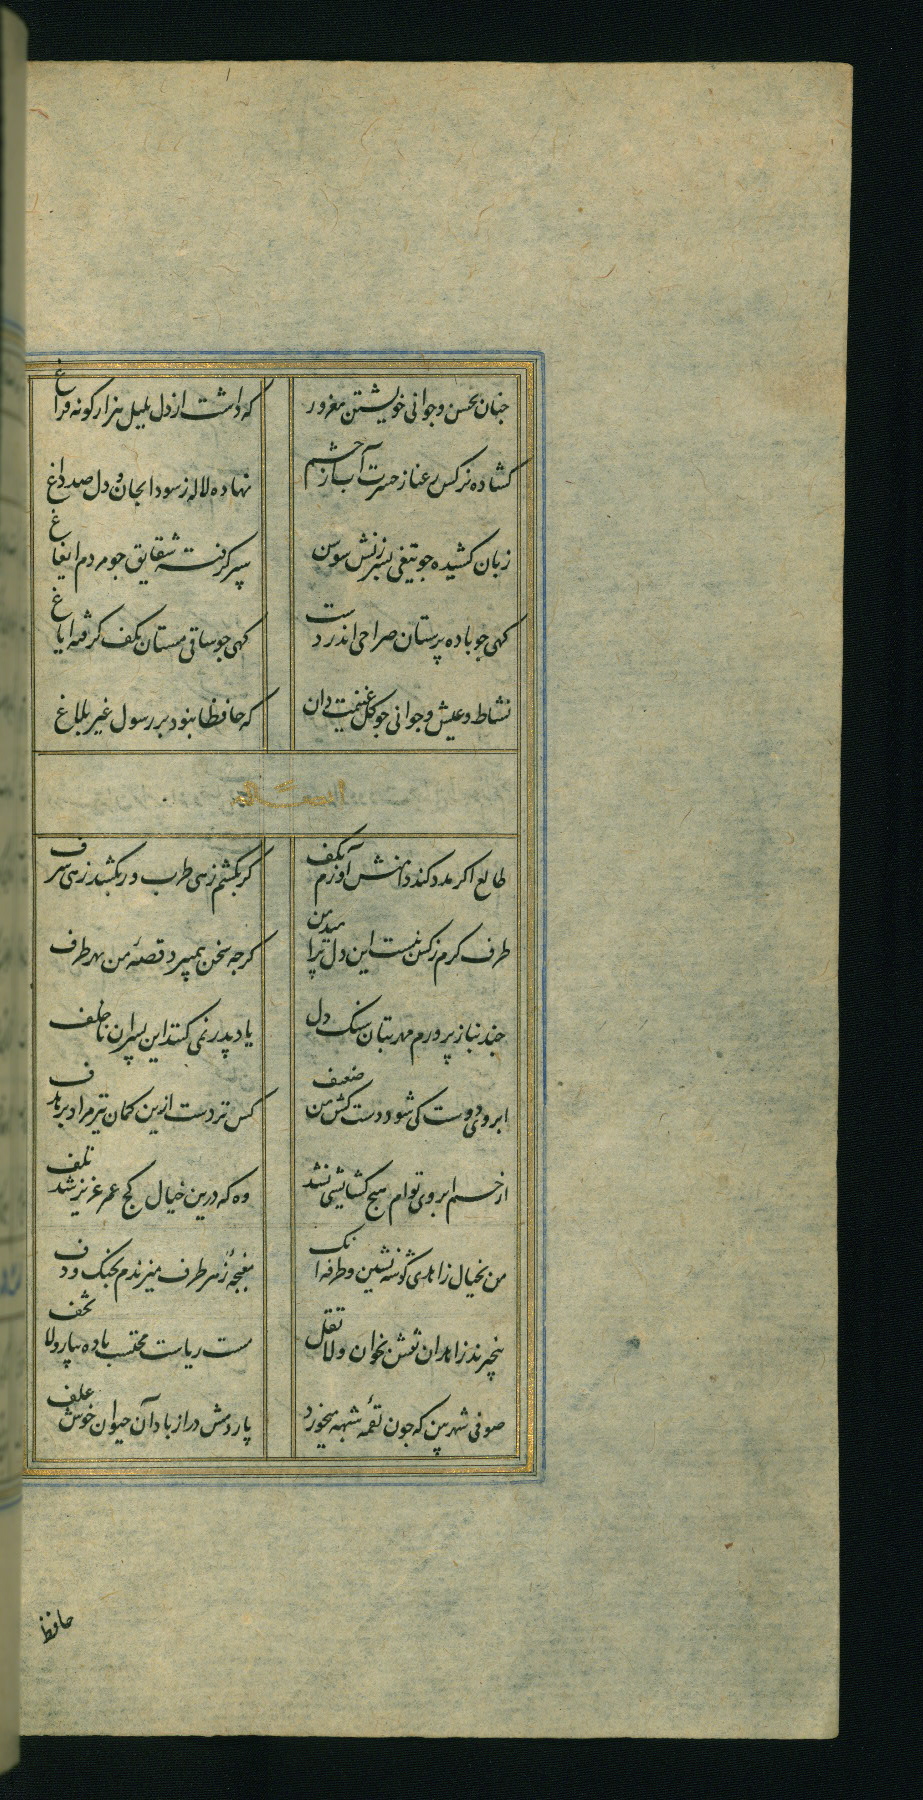 جنان بحسن و جوانی خویشتن مغرور
که داشت از دل بلبل هزار کونه فراغ
کشاده نرکس رعنا ز حسرت آب از چشم
نهاده لاله ز سودا بجان و دل صد داغ
زبان کشیده جو تیغی بسرزنش سوسن
سپر کرفته شقایق جو مردم ایغاغ
کهی جو باده پرستان صراحی اندر دست
کهی جو ساقی مستان بکف کرفته ایاغ
نشاط و عیش و جوانی جو کل غنیمت دان
که حافظا نبود بر رسول غیر بلاغ
طالع اکر مدد کند دامنش آورم بکف
کر بکشم زهی طرب ور بکشد زهی شرف
طرف کرم ز کس نبست این دل پر امید من
کرجه سخن همی برد قصهٔ من بهر طرف
جند بناز پرورم مهر بتان سنک دل
یاد پدر نمی کنند این پسران ناخلف
ابروی دوست کی شود دست کش من ضعیف
کس نزدست ازین کمان تیر مراد بر هدف
از خم ابروی توام هیج کشایشی نشد
وه که درین خیال کج عمر عزیز شد تلف
من بخیال زاهدی کوشه نشین و طرفه انک
مغبجهٔ ز هر طرف میزندم بجنک و دف
بیخبرند زاهدان نقش بخوان ولا تقل
مست ریاست محتسب باده بیار ولا تخف
صوفی شهر بین که جون لقمهٔ شبهه میخورد
پاردمش دراز باد آن حیوان خوش علف
حافظ